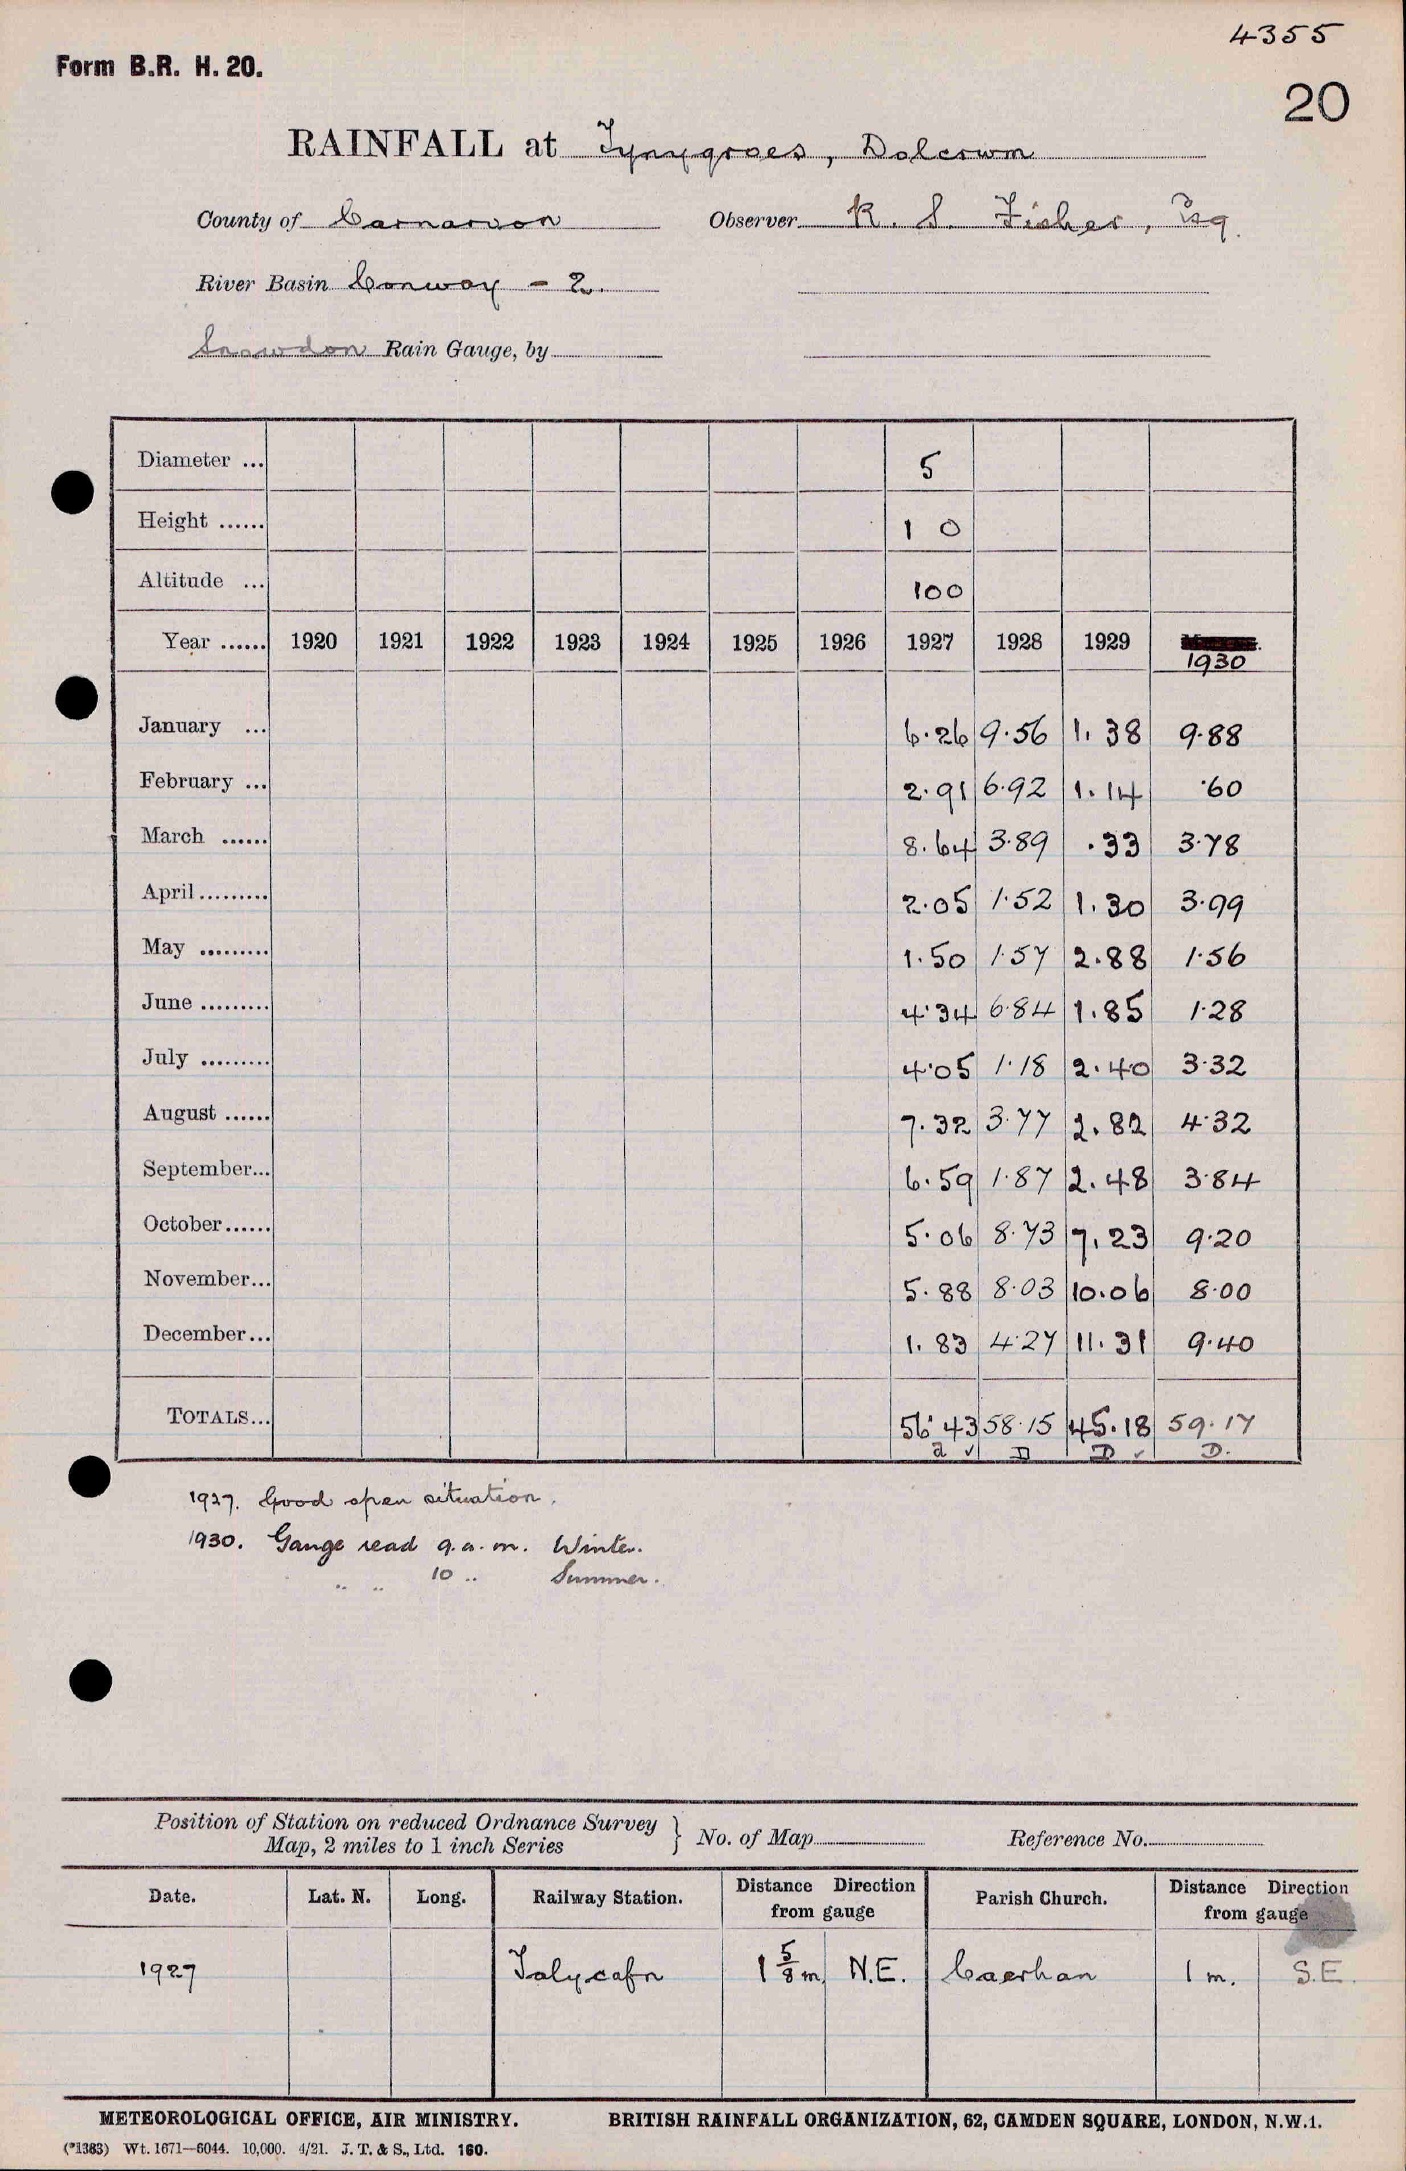 4355
Form B.R. H. 20.
20
RAINFALL at Tynygroes, Dolcrwm
County of Carnarvon Observer R. S. Fisher, Esq.
River Basin Conway - 2.
Snowdon Rain Gauge, by
Diameter ... 5
Height ...... 1 0
Altitude ... 100
Year ...... 1920 1921 1922 1923 1924 1925 1926 1927 1928 1929 1930
January ... 6.26 9.56 1.38 9.88
February ... 2.91 6.92 1.14 .60
March ...... 8.64 3.89 .33 3.78
April ......... 2.05 1.52 1.30 3.99
May ......... 1.50 1.57 2.88 1.56
June ......... 4.34 6.84 1.85 1.28
July ......... 4.05 1.18 2.40 3.32
August ...... 7.32 3.77 2.82 4.32
September... 6.59 1.87 2.48 3.84
October...... 5.06 8.73 7.23 9.20
November... 5.88 8.03 10.06 8.00
December... 1.83 4.27 11.31 9.40
TOTALS... 56.43 58.15 45.18 59.17
a ✓ D D ✓ D.
1927. Good open situation.
1930. Gauge read 9. a. m. Winter.
" " 10 " Summer.
Position of Station on reduced Ordnance Survey
Map, 2 miles to 1 inch Series } No. of Map Reference No.
Date. Lat. N. Long. Railway Station. Distance Direction from gauge Parish Church. Distance Direction from gauge
1927 Talycafn 1 5/8 m. N.E. Caerhan 1 m. S.E.
METEOROLOGICAL OFFICE, AIR MINISTRY. BRITISH RAINFALL ORGANIZATION, 62, CAMDEN SQUARE, LONDON, N.W.1.
(*1383) Wt. 1671—6044. 10,000. 4/21. J. T. & S., Ltd. 160.